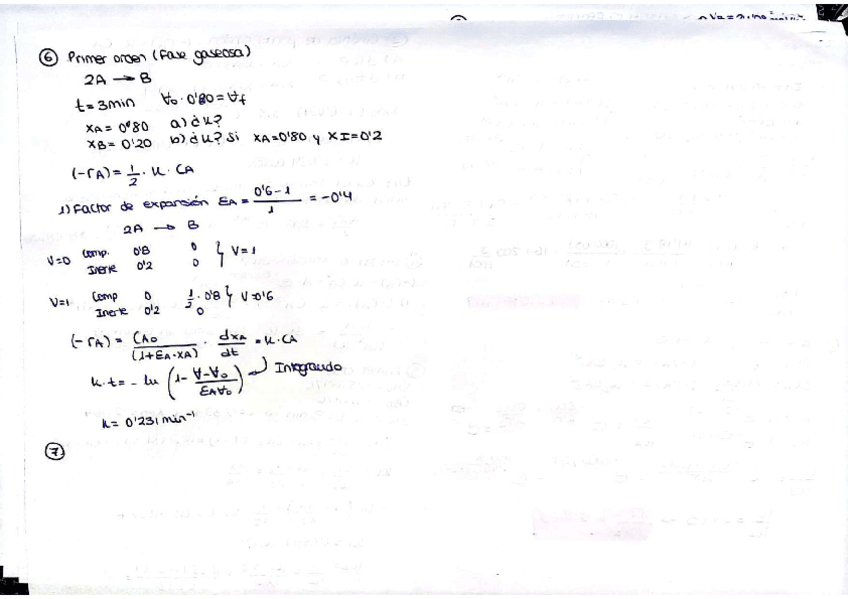 ⑥ Primer orden (Fase gaseosa)
2A → B
t = 3min ∀o · 0'80 = ∀f
XA = 0'80 a) ¿k?
XB = 0'20 b) ¿k? Si XA=0'80 y XI=0'2
(-rA) = 1/2 · k · CA
1) Factor de expansión εA = (0'6 - 1)/1 = -0'4
2A → B
V=0 Comp. 0'8 0 } V=1
Inerte 0'2 0
V=1 Comp 0 1/2 · 0'8 } V=0'6
Inerte 0'2 0
(-rA) = CAo/(1+εA·XA) · dXA/dt = k·CA
k·t = -ln (1 - (∀-∀o)/(εA∀o)) Integrando
k = 0'231 min⁻¹
⑦